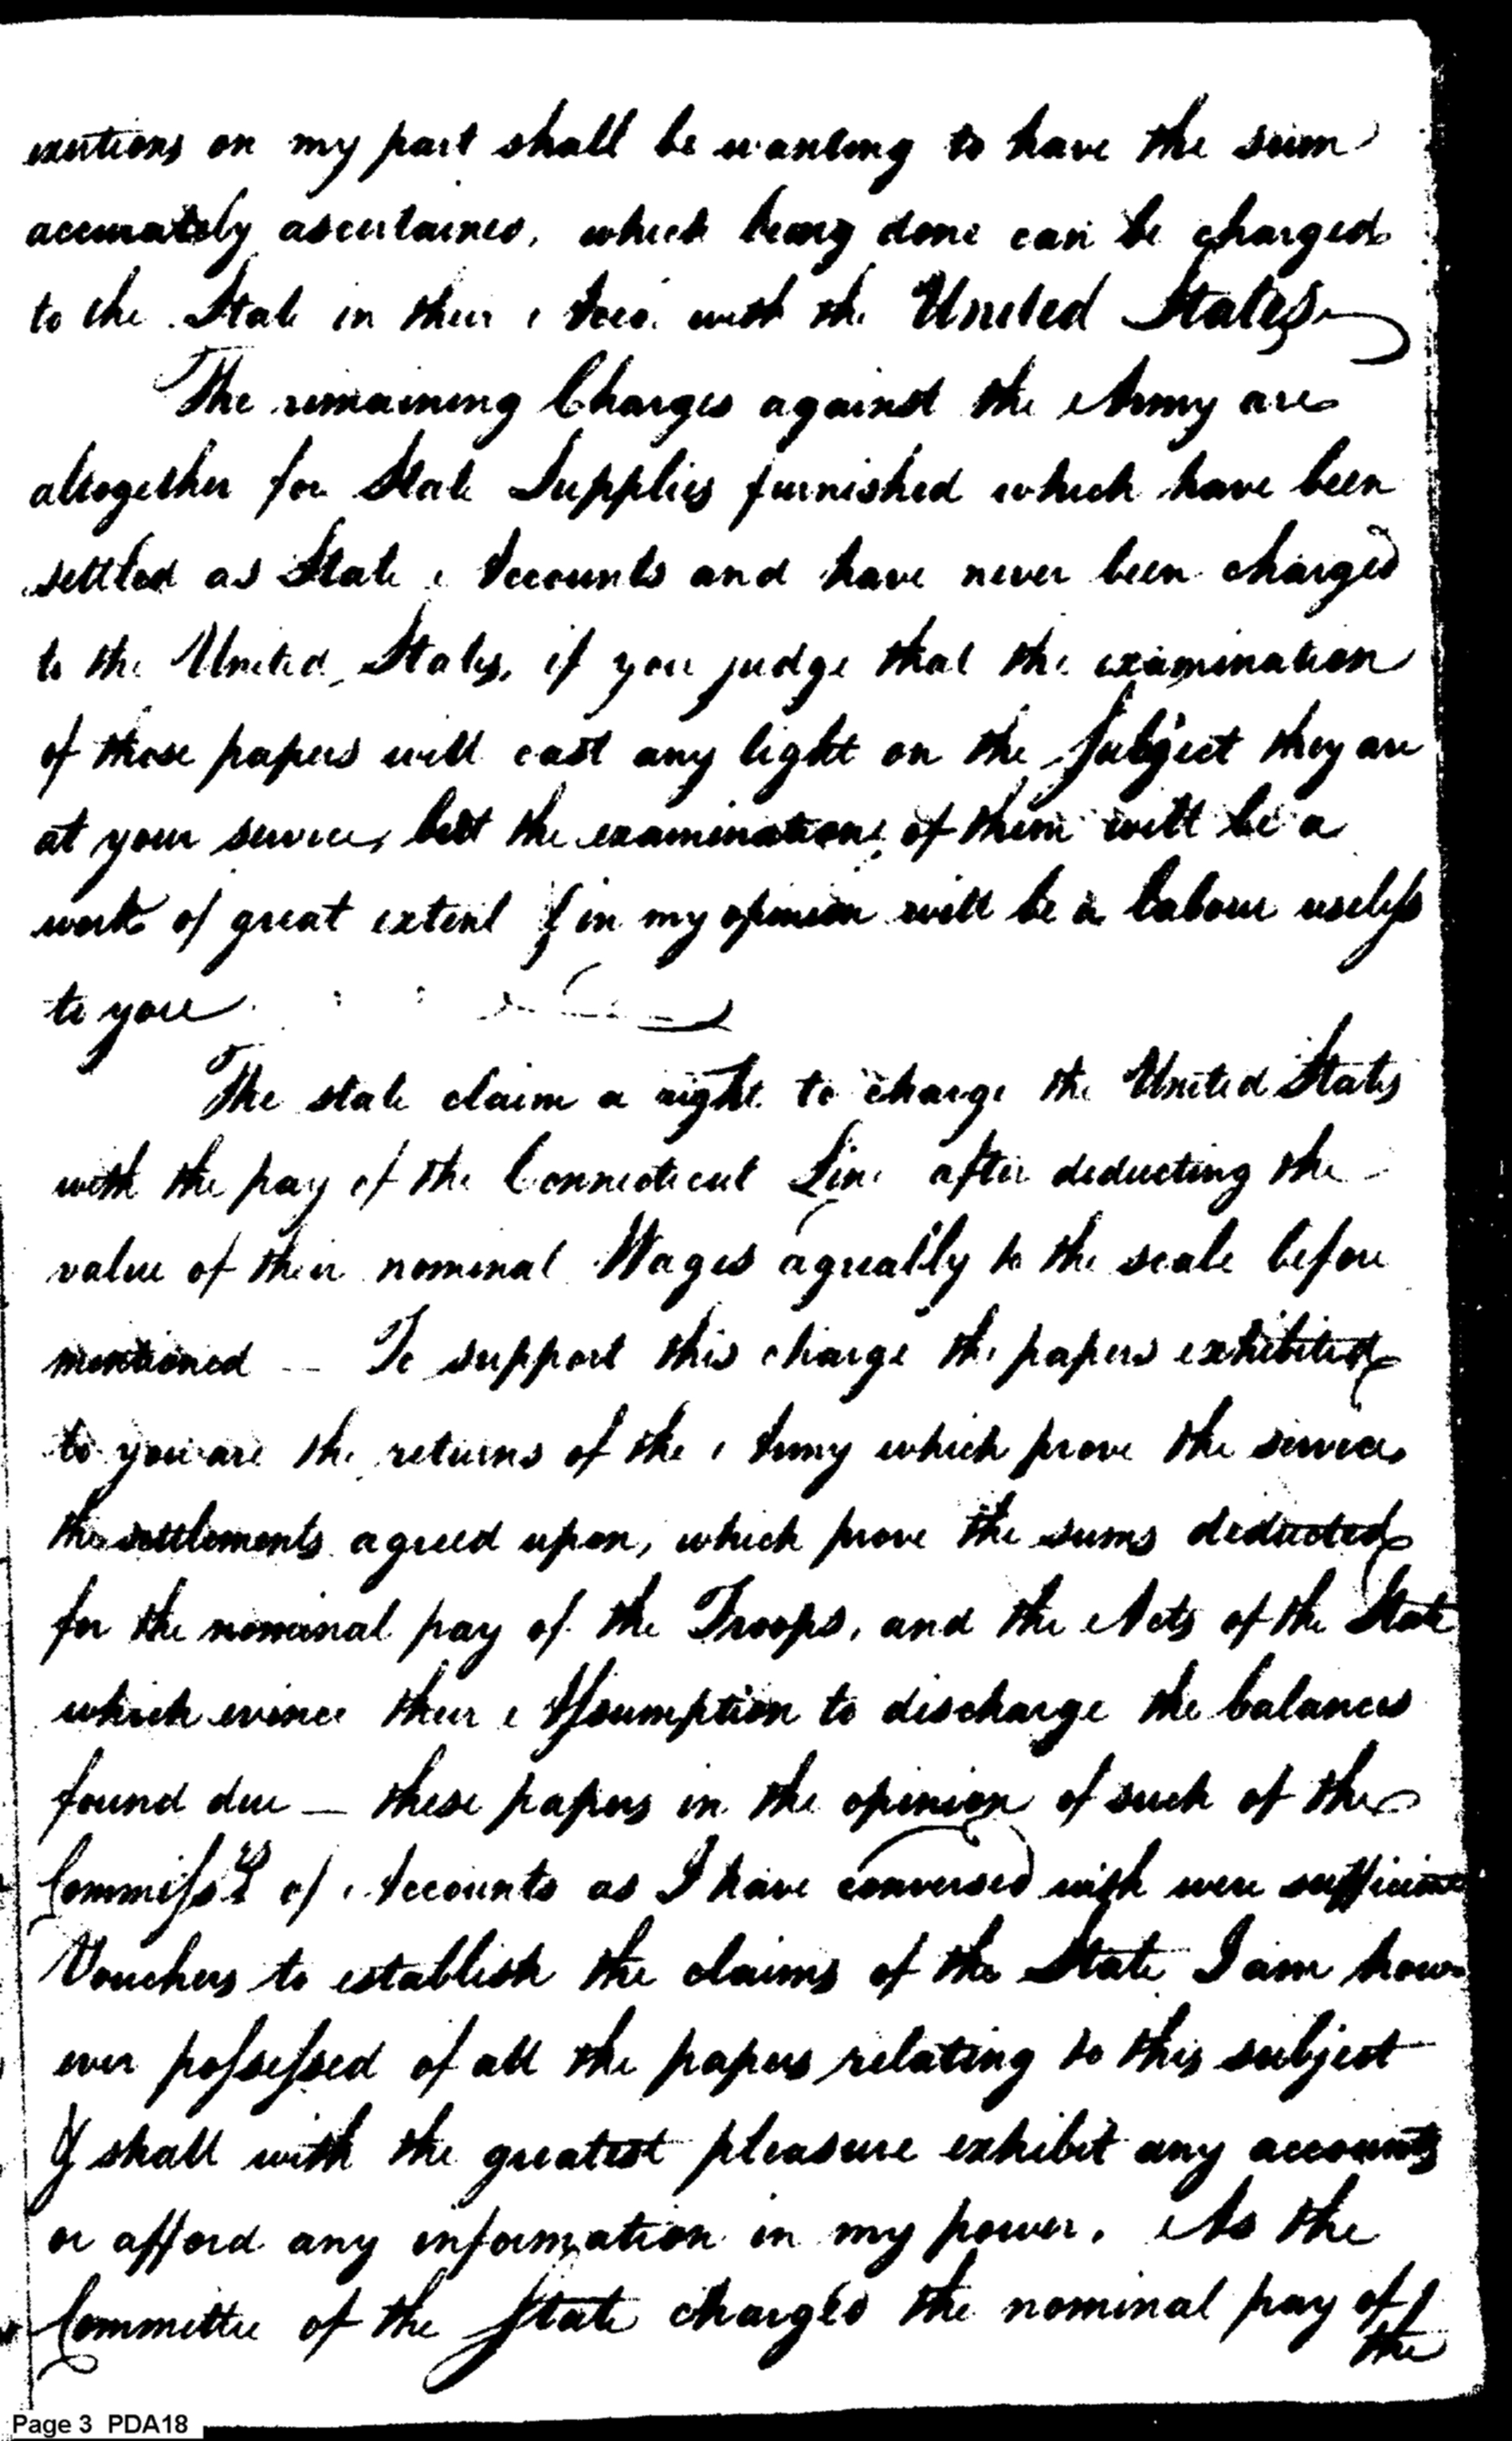 exertions on my part shall be wanting to have the sum
accurately ascertained, which being done can be charged
to the State in their Acco. with the United States
The remaining Charges against the Army are
altogether for State Supplies furnished which have been
settled as State Accounts and have never been charged
to the United States, if you judge that the examination
of those papers will cast any light on the Subject they are
at your service, but the examination of them will be a
work of great extent & in my opinion will be a labour useless
to you
The state claim a right to charge the United States
with the pay of the Connecticut Line after deducting the
value of their nominal Wages agreably to the scale before
mentioned — To support this charge the papers exhibited
to you are the returns of the Army which prove the service
the settlements agreed upon, which prove the sums deducted
for the nominal pay of the Troops, and the Acts of the State
which evince their Assumption to discharge the balances
found due — these papers in the opinion of such of the
Commissrs of Accounts as I have conversed with were sufficient
Vouchers to establish the claims of the State I am how-
ever possessed of all the papers relating to this subject
& shall with the greatest pleasure exhibit any accounts
or afford any information in my power. As the
Committee of the State charged the nominal pay of
the
Page 3 PDA18